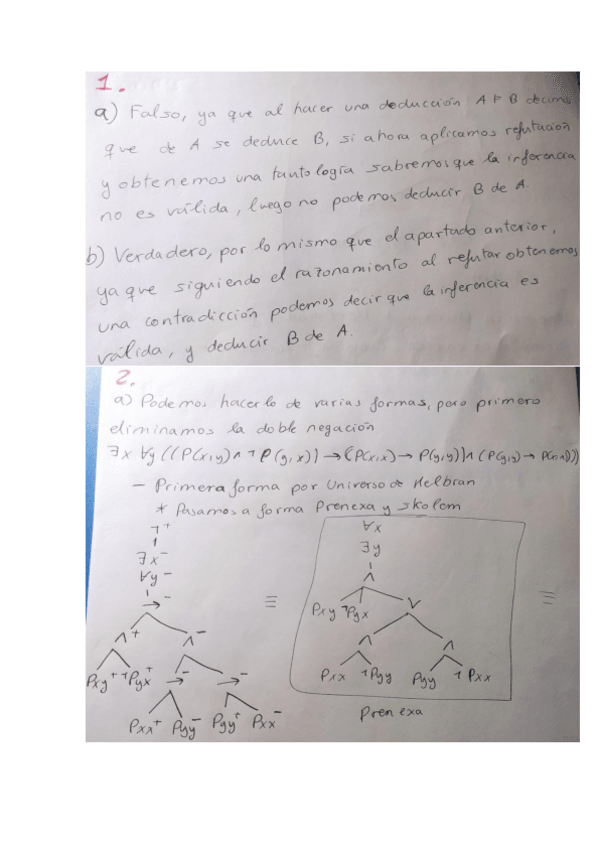 1.
a) Falso, ya que al hacer una deducción A ⊢ B decimos
que de A se deduce B, si ahora aplicamos refutación
y obtenemos una tautología sabremos que la inferencia
no es válida, luego no podemos deducir B de A.
b) Verdadero, por lo mismo que el apartado anterior,
ya que siguiendo el razonamiento al refutar obtenemos
una contradicción podemos decir que la inferencia es
válida, y deducir B de A.
2.
a) Podemos hacerlo de varias formas, pero primero
eliminamos la doble negación
∃x ∀y ((P(x,y) ∧ ¬P(y,x)) → (P(x,x) → P(y,y)) ∧ (P(y,y) → P(x,x)))
- Primera forma por Universo de Helbran
* Pasamos a forma Prenexa y Skolem
¬+
∃x-
∀y-
→-
∧+ ∧-
Pxy+ ¬Pyx+ →- →-
Pxx+ Pyy- Pyy+ Pxx-
≡
∀x
∃y
∧
Pxy ¬Pyx ∨
∧ ∧
Pxx ¬Pyy Pyy ¬Pxx
Prenexa
≡